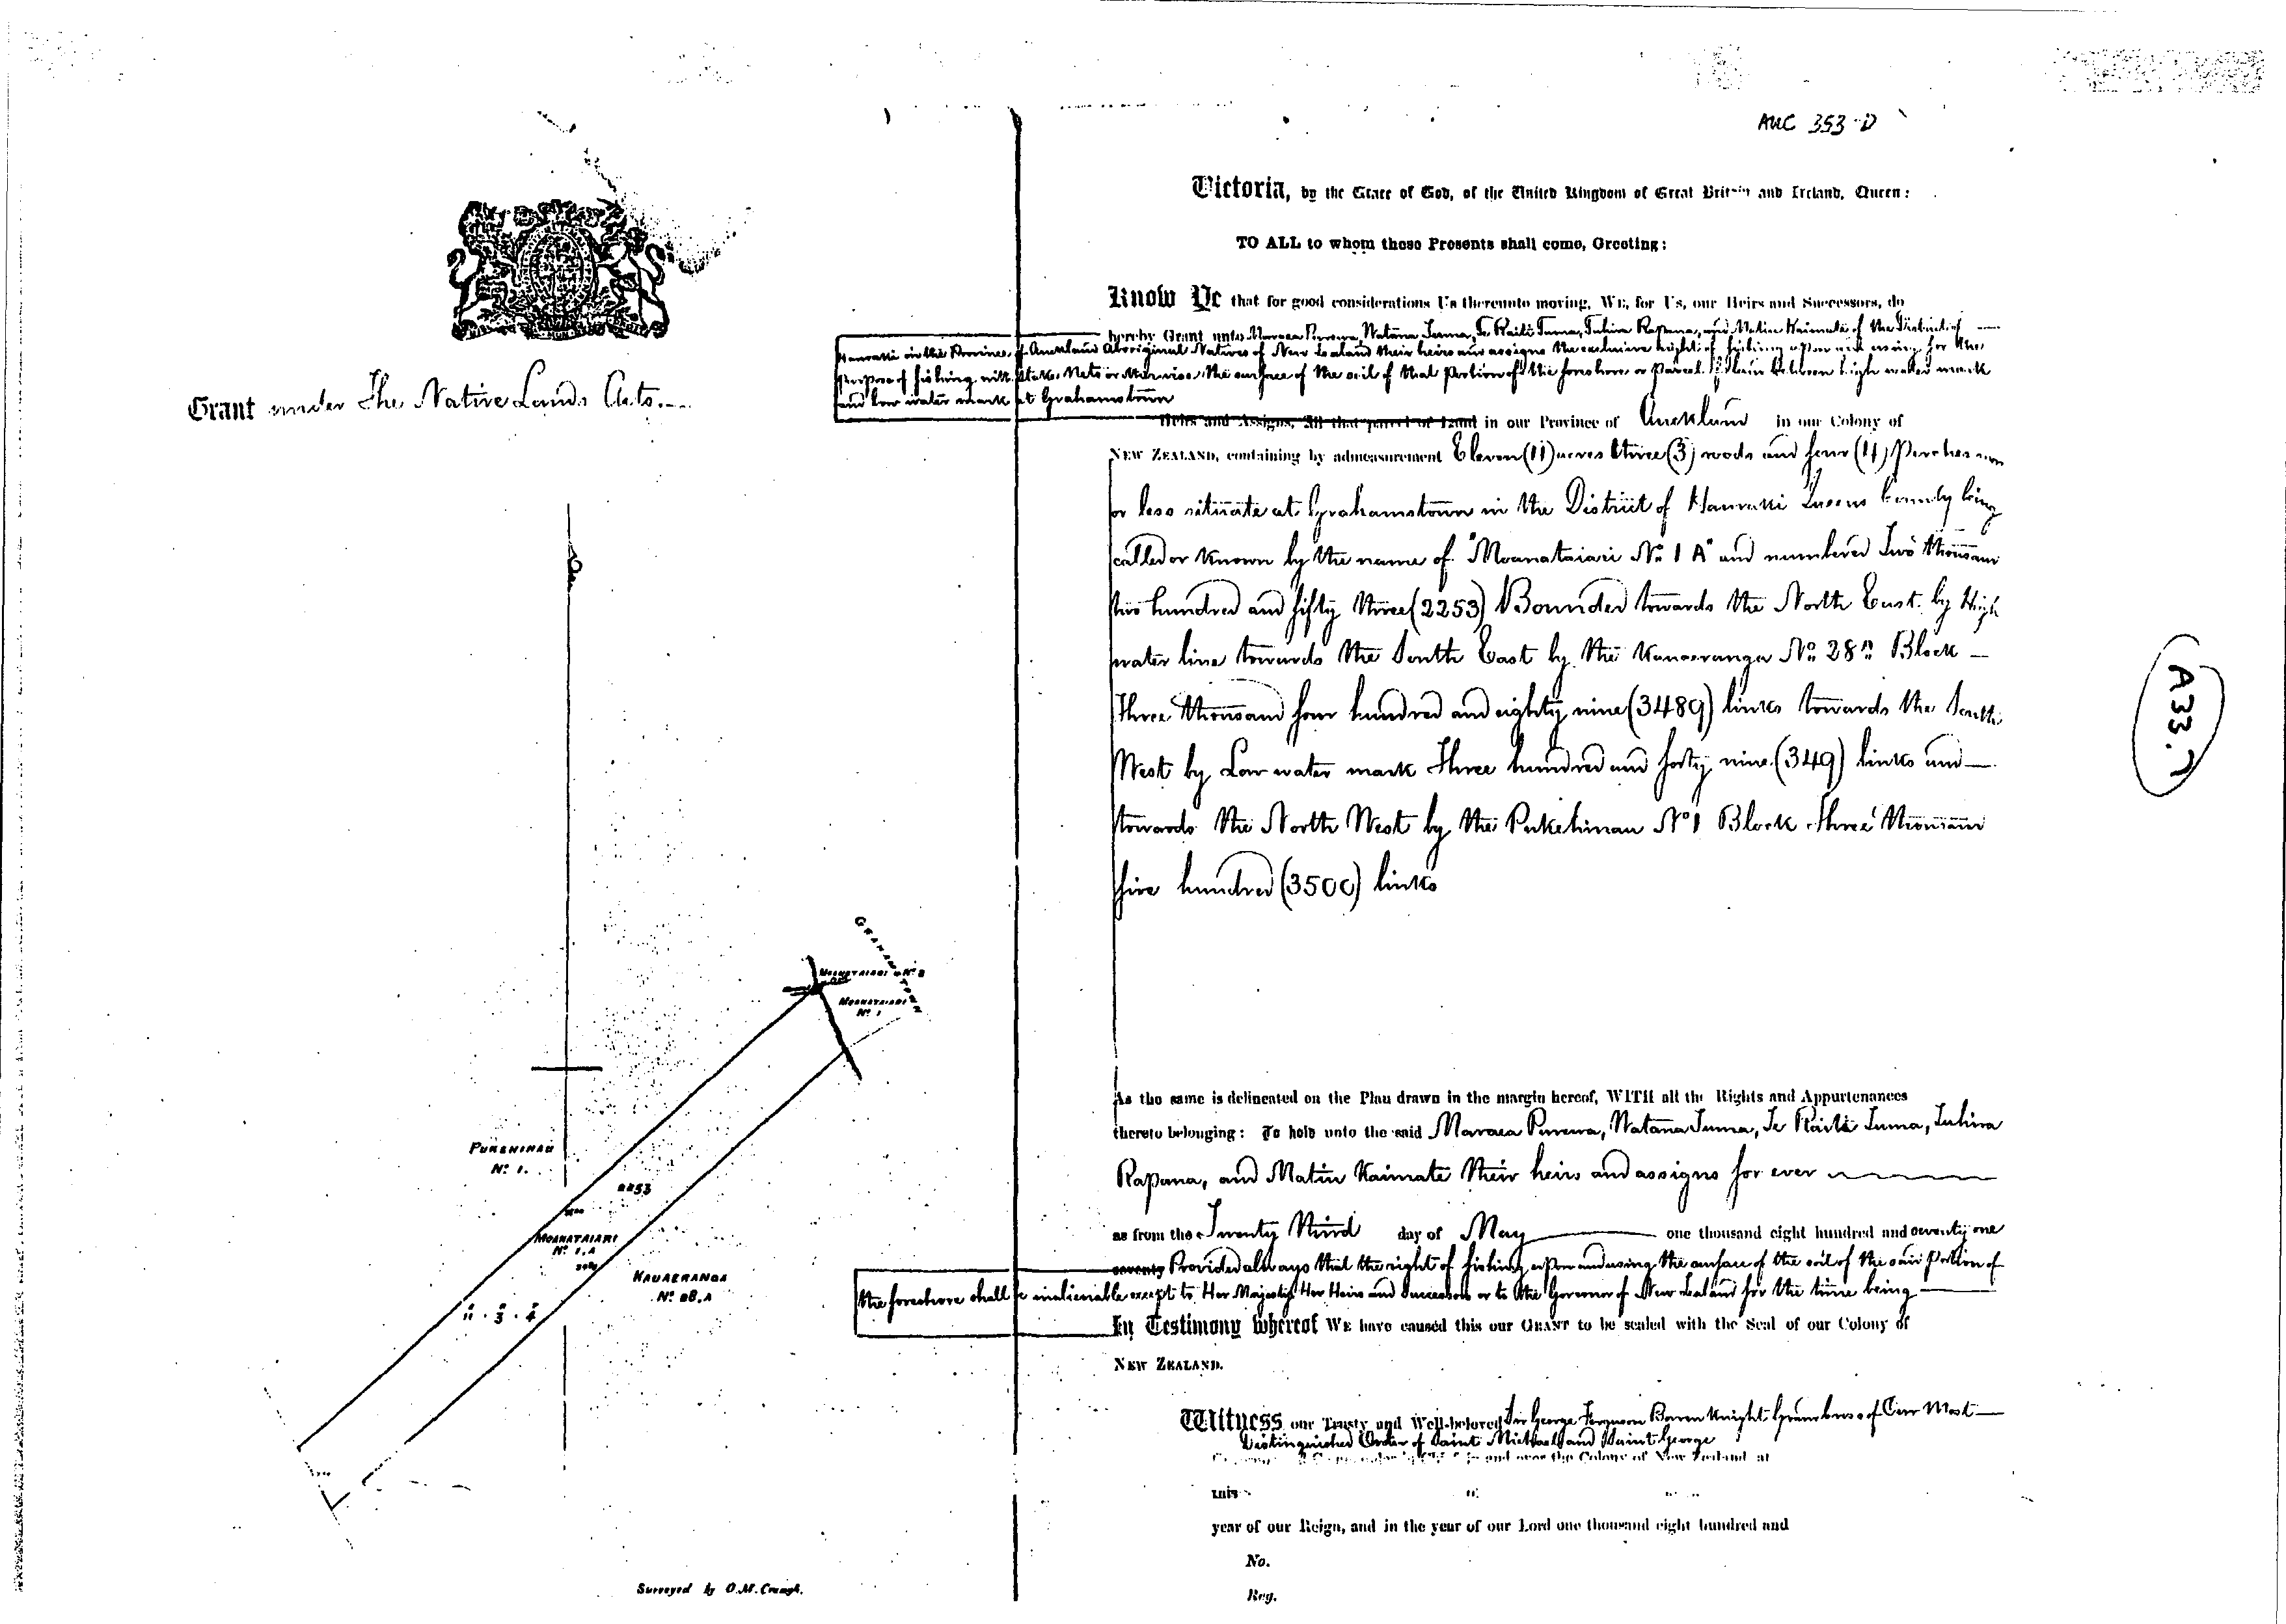 AUC 353-D
Victoria, by the Grace of God, of the United Kingdom of Great Britain and Ireland, Queen:
TO ALL to whom these Presents shall come, Greeting:
Know Ye that for good considerations Us thereunto moving, WE, for Us, our Heirs and Successors, do
hereby Grant unto Maraea Purewa, Watana Tuma, Te Raiti Tuma, Tuhira Rapana, and Matiu Kaimate of the District of
Hauraki in the Province of Auckland Aboriginal Natives of New Zealand their heirs and assigns the exclusive right of fishing upon and using for the
purpose of fishing with Stake Nets or otherwise the surface of the soil of that portion of the foreshore or parcel of land between high water mark
and low water mark at Grahamstown
Heirs and Assigns, All that parcel of Land in our Province of Auckland in our Colony of
NEW ZEALAND, containing by admeasurement Eleven (11) acres three (3) roods and four (4) Perches more
or less situate at Grahamstown in the District of Hauraki Queens County being
called or known by the name of "Moanataiari No 1 A" and numbered Two thousand
two hundred and fifty three (2253) Bounded towards the North East by High
water line towards the South East by the Kauaeranga No 28A Block
Three thousand four hundred and eighty nine (3489) links towards the South
West by Low water mark Three hundred and forty nine (349) links and
towards the North West by the Pukehinau No 1 Block Three thousand
five hundred (3500) links
As the same is delineated on the Plan drawn in the margin hereof, WITH all the Rights and Appurtenances
thereto belonging: To hold unto the said Maraea Purewa, Watana Tuma, Te Raiti Tuma, Tuhira
Rapana, and Matiu Kaimate their heirs and assigns for ever
as from the Twenty third day of May one thousand eight hundred and seventy one
seventy Provided always that the right of fishing upon and using the surface of the soil of the said portion of
the foreshore shall be inalienable except to Her Majesty Her Heirs and Successors or to the Governor of New Zealand for the time being
In Testimony whereof WE have caused this our GRANT to be sealed with the Seal of our Colony of
NEW ZEALAND.
Witness our Trusty and Well-beloved Sir George Ferguson Bowen Knight Grand Cross of Our Most
Distinguished Order of Saint Michael and Saint George
in and over the Colony of New Zealand at
this
year of our Reign, and in the year of our Lord one thousand eight hundred and
No.
Reg.
A33.
Grant under The Native Lands Acts.
GRAHAMSTOWN
MOANATAIARI No 2
MOANATAIARI
No 1
PUKEHINAU
No 1.
2253
3500
MOANATAIARI
No 1.A
3489
KAUAERANGA
No 28.A
11 . 3 . 4
Surveyed by O.M. Creagh.